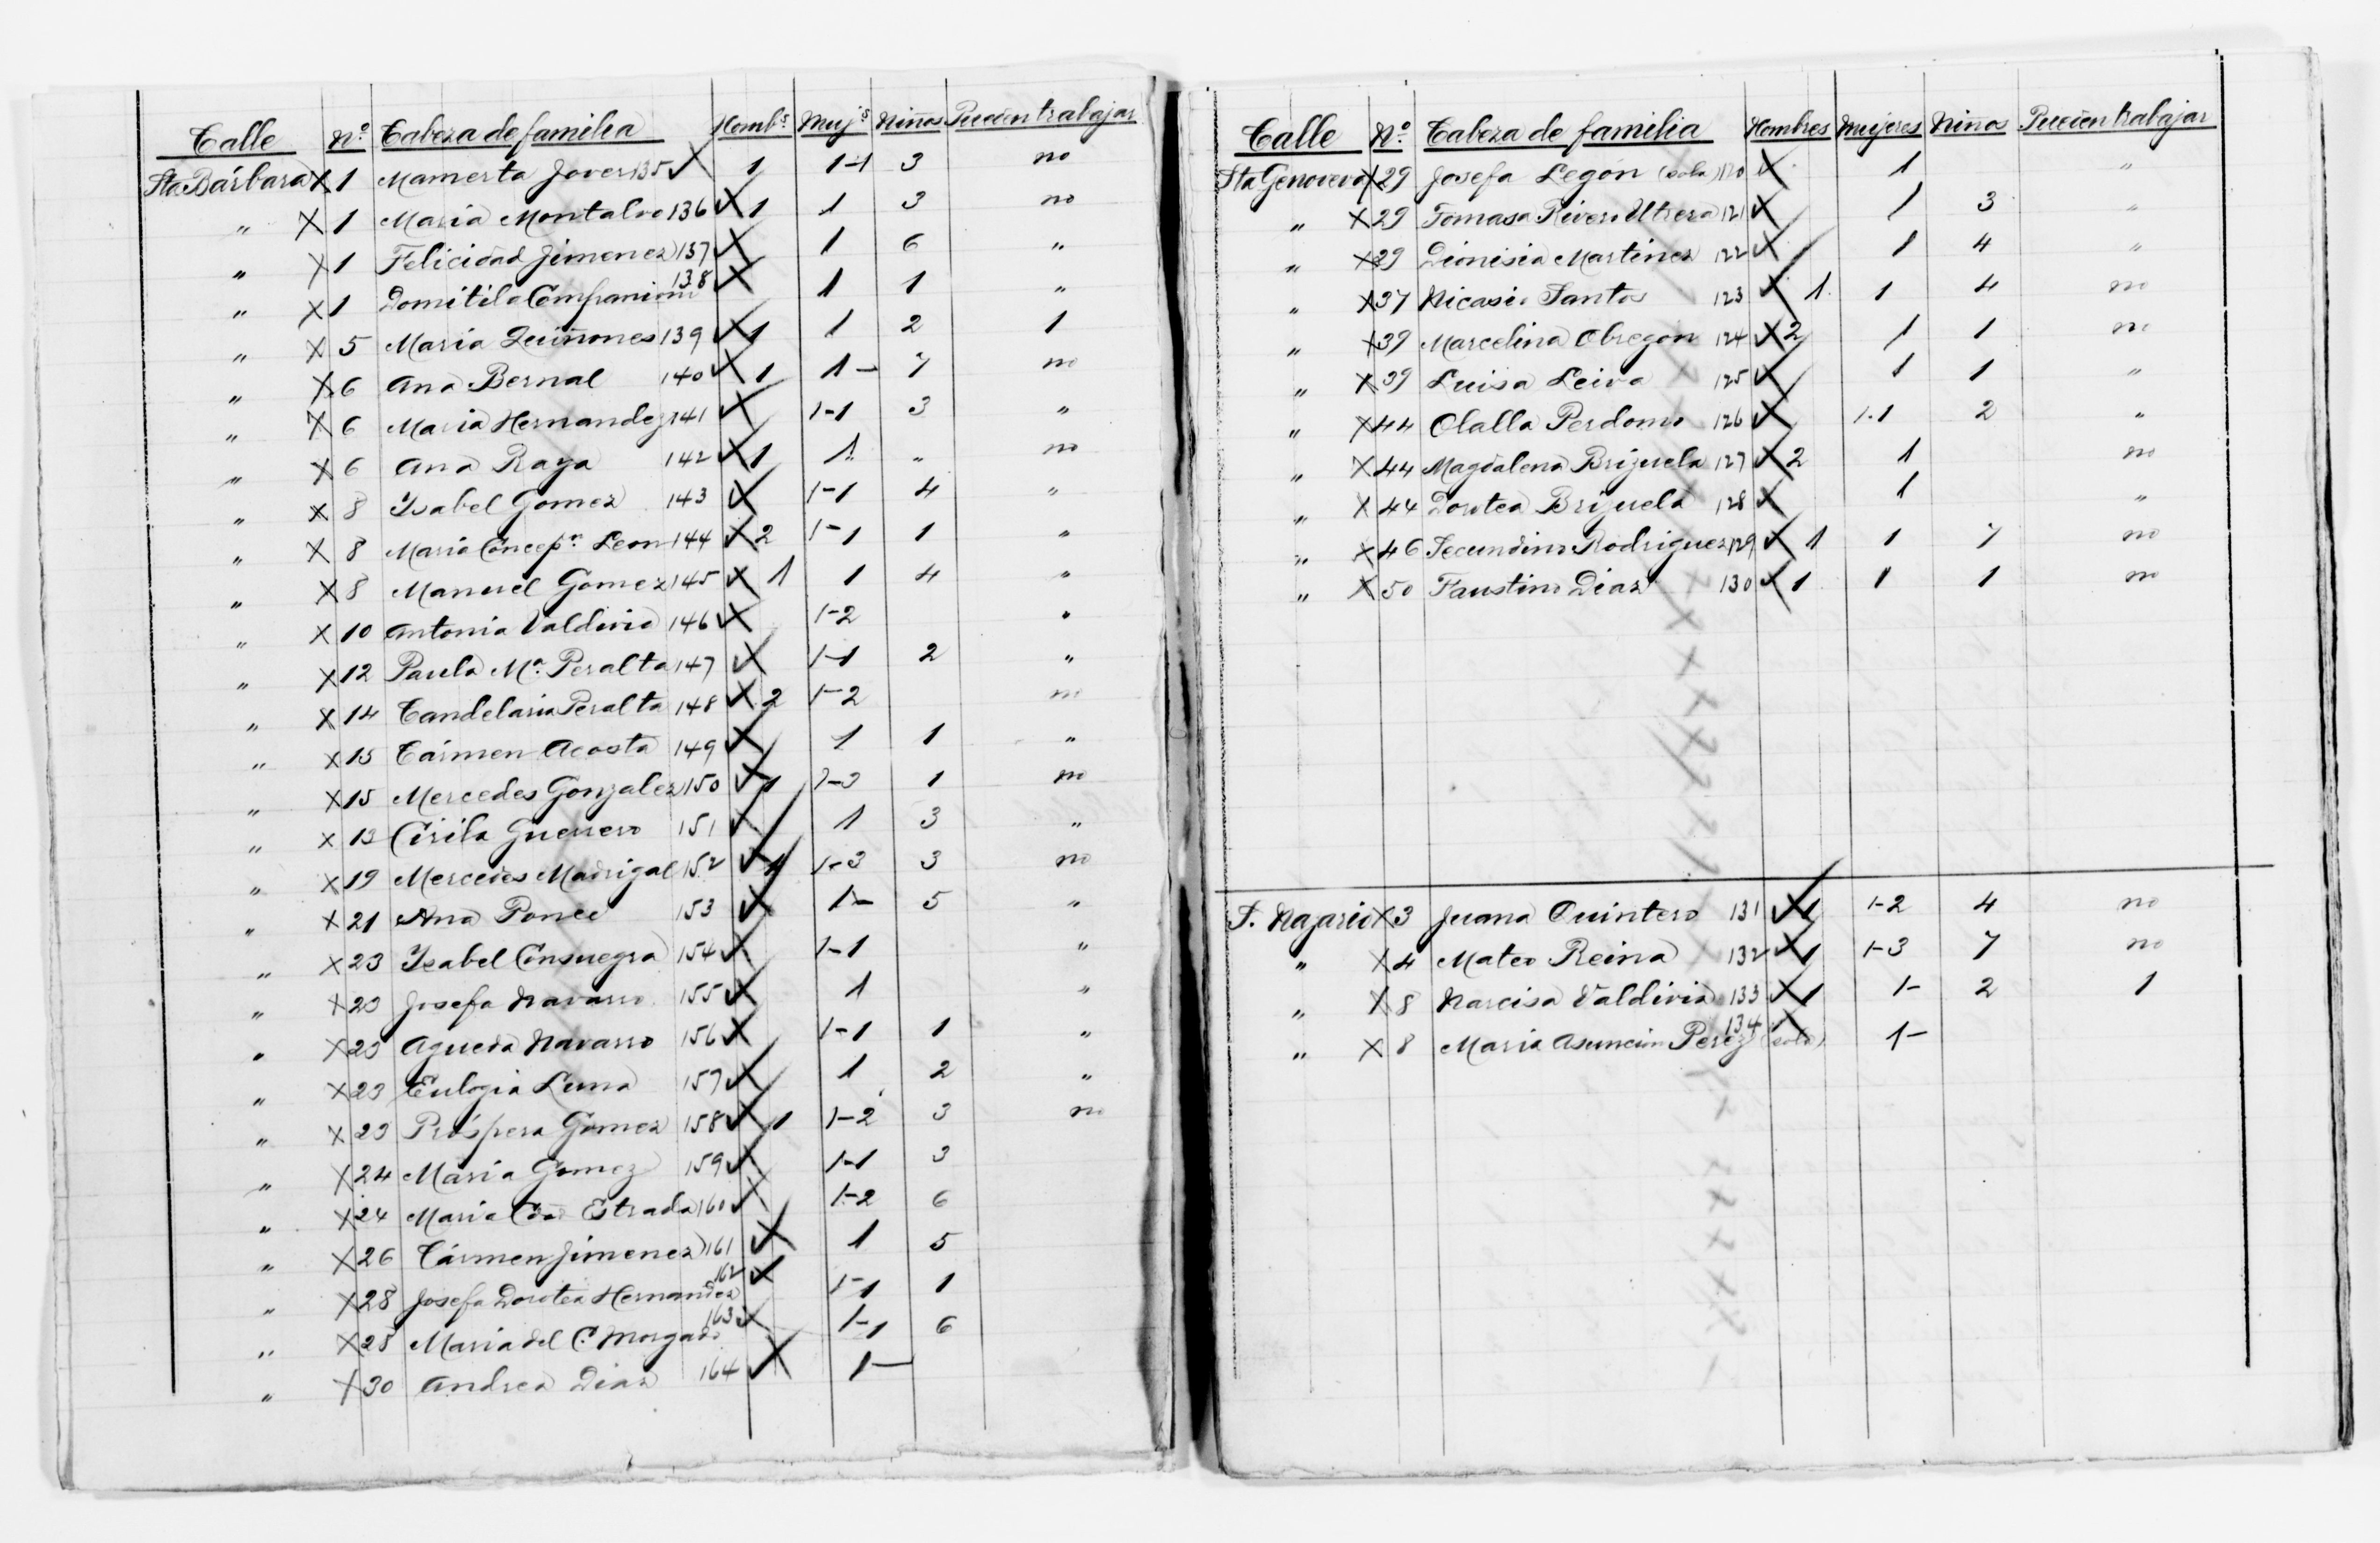 Calle Nº Cabeza de familia Hombs Mujs Niños Pueden trabajar
Sta Bárbara X 1 Mamerta Jover 135 X 1 1-1 3 no
" X 1 Maria Montalvo 136 X 1 1 3 no
" X 1 Felicidad Jimenez 137 X 1 6 "
" X 1 Domitila 138 X 1 1 "
" X 5 Maria Quiñones 139 X 1 1 2 1
" X 6 Ana Bernal 140 X 1 1- 7 no
" X 6 Maria Hernandez 141 X 1-1 3 "
" X 6 Ana Raya 142 X 1 1 " no
" X 8 Ysabel Gomez 143 X 1-1 4 "
" X 8 Maria Concepn Leon 144 X 2 1-1 1 "
" X 8 Manuel Gomez 145 X 1 1 4 "
" X 10 Antonia Valdivia 146 X 1-2 "
" X 12 Paula Mª Peralta 147 X 1-1 2 "
" X 14 Candelaria Peralta 148 X 2 1-2 no
" X 15 Cármen Acosta 149 X 1 1 "
" X 15 Mercedes Gonzalez 150 X 1 1-3 1 no
" X 19 Cirila Guerrero 151 X 1 3 "
" X 19 Mercedes Madrigal 152 X 1 1-3 3 no
" X 21 Ana Ponce 153 X 1- 5 "
" X 23 Ysabel Consuegra 154 X 1-1 "
" X 23 Josefa Navarro 155 X 1 "
" X 23 Agueda Navarro 156 X 1-1 1 "
" X 23 Eulogia Luna 157 X 1 2 "
" X 23 Próspera Gómez 158 X 1 1-2 3 no
" X 24 Maria Gomez 159 X 1-1 3
" X 24 Maria Estrada 160 X 1-2 6
" X 26 Cármen Jimenez 161 X 1 5
" X 28 Josefa Dorotea Hernandez 162 X 1-1 1
" X 28 Maria del C. Morgado 163 X 1-1 6
" X 30 Andrea Diaz 164 X 1-
Calle Nº Cabeza de familia Hombres Mujeres Niños Pueden trabajar
Sta Genoveva X 29 Josefa Legón (sola) 120 X 1 "
" X 29 Tomasa Rivero Utrera 121 X 1 3 "
" X 29 Dionisia Martinez 122 X 1 4 "
" X 37 Nicasio Santos 123 X 1 1 4 no
" X 39 Marcelina Obregón 124 X 2 1 1 no
" X 39 Luisa Leiva 125 X 1 1 "
" X 44 Olalla Perdomo 126 X 1-1 2 "
" X 44 Magdalena Brizuela 127 X 2 1 no
" X 44 Dorotea Brizuela 128 X 1 "
" X 46 Secundino Rodriguez 129 X 1 1 7 no
" X 50 Faustino Diaz 130 X 1 1 1 no
S. Nazario X 3 Juana Quintero 131 X 1 1-2 4 no
" X 4 Mateo Reina 132 X 1 1-3 7 no
" X 8 Narcisa Valdivia 133 X 1 1- 2 1
" X 8 Maria Asuncion Perez 134 (sola) X 1-